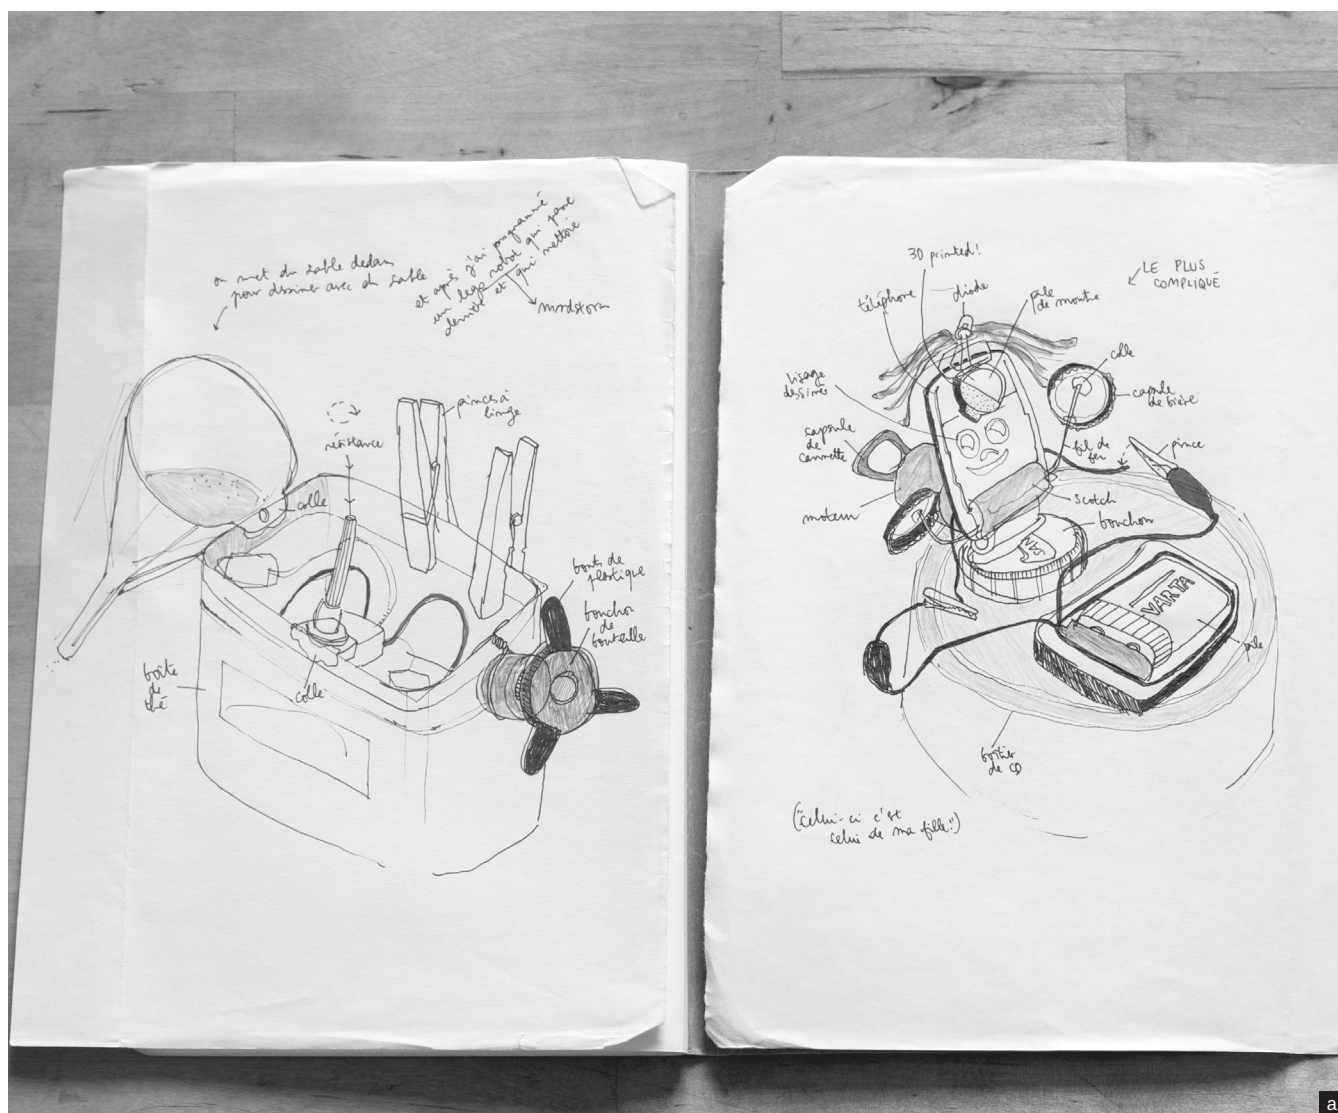 on met du sable dedans
pour dessiner avec du sable
et après j'ai programmé
un lego robot qui passe
derrière et qui nettoie
mindstorm
résistance
pinces à
linge
colle
bouts de
plastique
bouchon
de
bouteille
boîte
de
thé
colle
3D printed!
LE PLUS
COMPLIQUÉ
téléphone
diode
pile
de montre
colle
visage
dessiné
capsule
de bière
capsule
de
cannette
fil de
fer
pince
moteur
scotch
bouchon
VARTA
pile
boîtier
de CD
("celui-ci c'est
celui de ma fille")
a